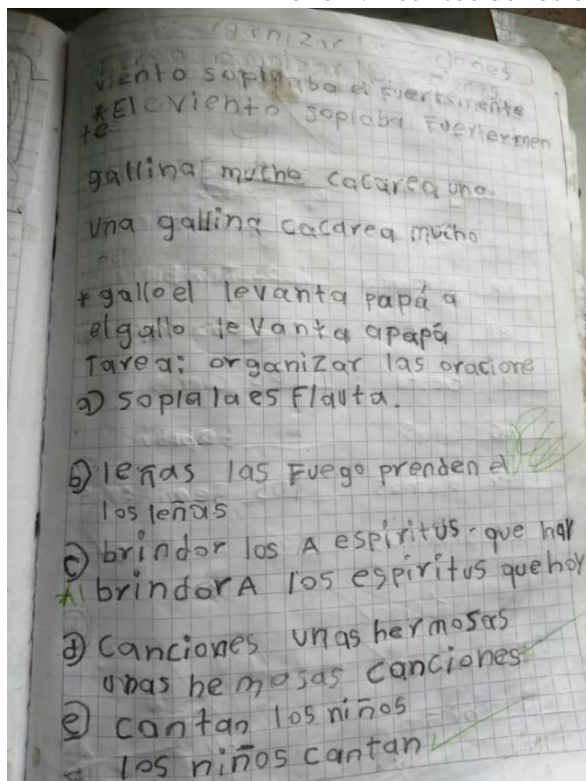 viento soplaba el fuertemente
*El viento soplaba fuertermen
te
gallina mucho cacarea una.
una gallina cacarea mucho
*galloel levanta papá a
elgallo levanta apapá
Tarea: organizar las oracione
a) sopla la es Flauta.
b) leñas las Fuego prenden el
los leñas
c) brindor los A espiritus que hay
brindor A los espiritus que hoy
d) canciones unas hermosas
unas hemosas canciones
e) cantan los niños
los niños cantan